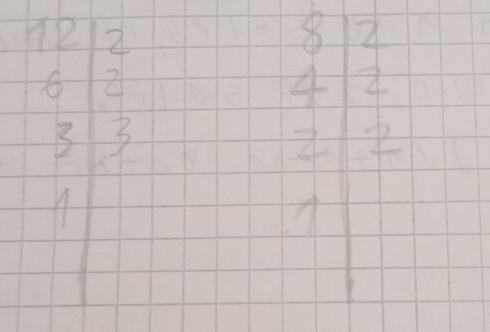 12 | 2 8 | 2
6 | 2 4 | 2
3 | 3 2 | 2
1 | 1 |